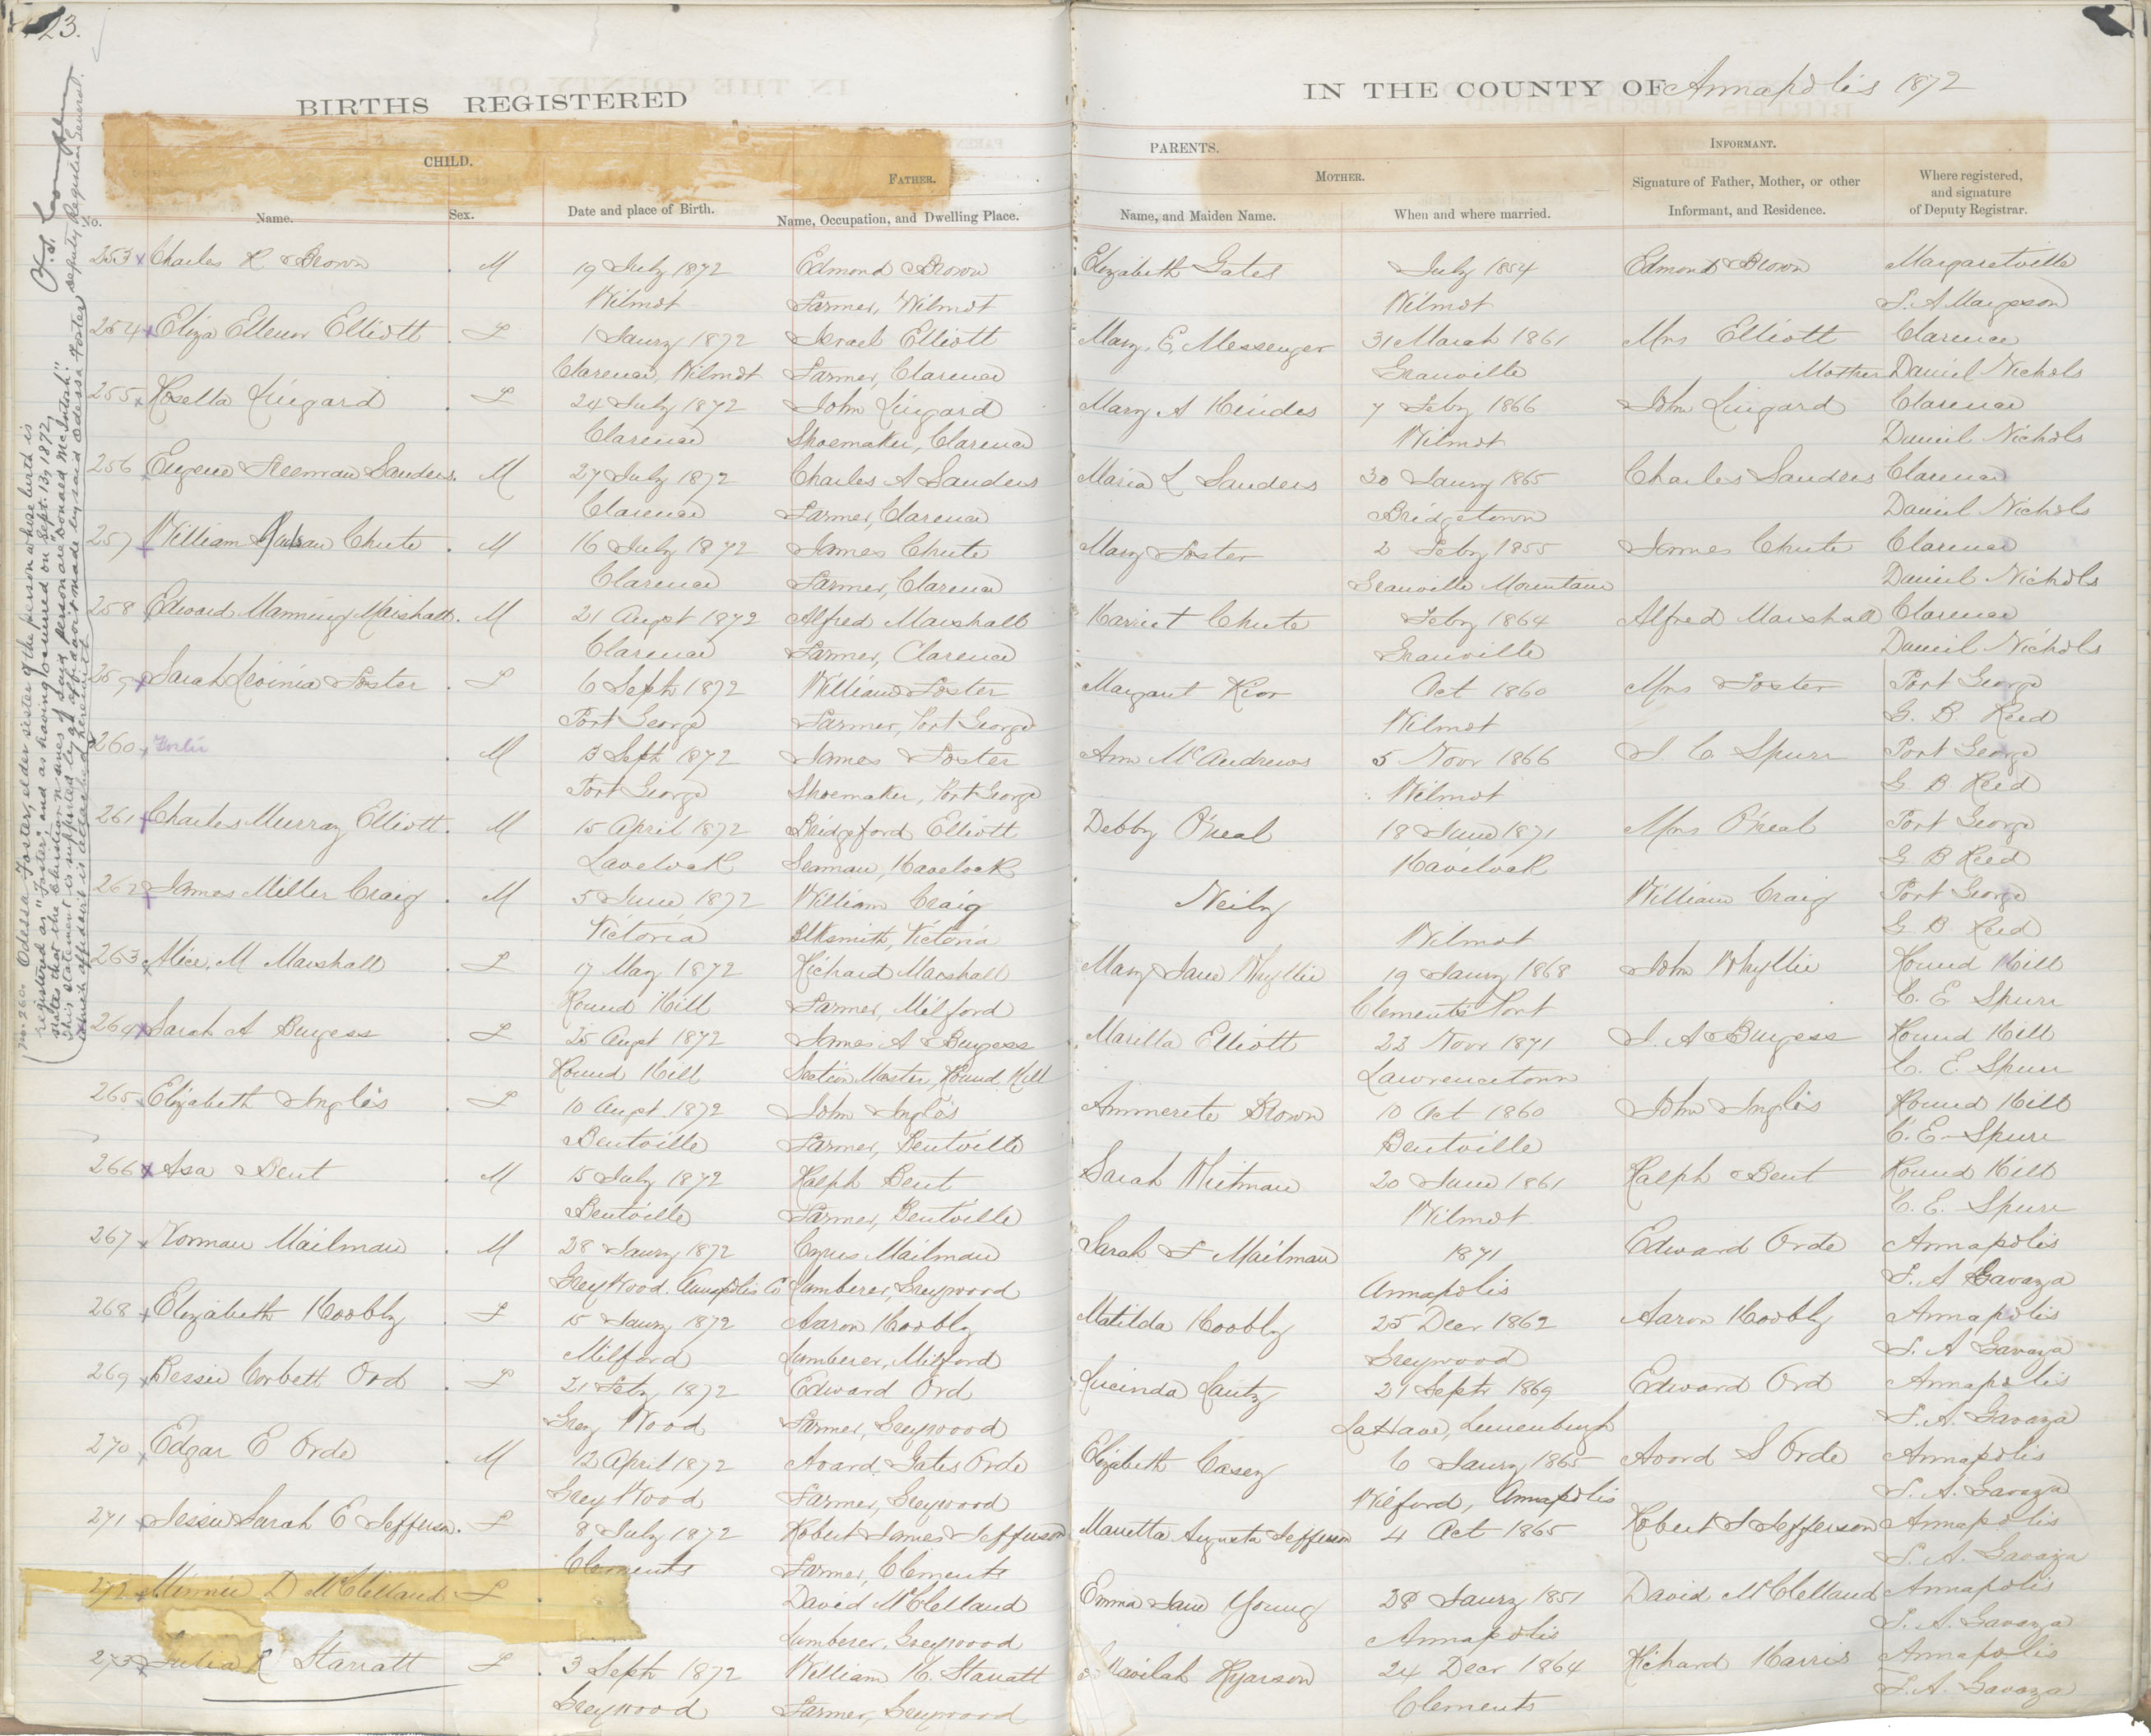 23.
BIRTHS REGISTERED
IN THE COUNTY OF Annapolis 1872
CHILD.
FATHER.
PARENTS.
MOTHER.
INFORMANT.
No.
Name.
Sex.
Date and place of Birth.
Name, Occupation, and Dwelling Place.
Name, and Maiden Name.
When and where married.
Signature of Father, Mother, or other
Informant, and Residence.
Where registered,
and signature
of Deputy Registrar.
253 x Charles R Brown . M 19 July 1872 Edmond Brown Elizabeth Gates July 1854 Edmond Brown Margaretville
Wilmot Farmer, Wilmot Wilmot S. A Margeson
254 x Eliza Ellenor Elliott . F 1 Jaury 1872 Israel Elliott Mary. E. Messenger 31 March 1861 Mrs Elliott Clarence
Clarence, Wilmot Farmer, Clarence Granville Mother Daniel Nichols
255 x Rosella Lingard . F 24 July 1872 John Lingard Mary A Hindes 7 Feby 1866 John Lingard Clarence
Clarence Shoemaker, Clarence Wilmot Daniel Nichols
256 x Eugene Freeman Sanders. M 27 July 1872 Charles A Sanders Maria L Sanders 30 Jaury 1865 Charles Sanders Clarence
Clarence Farmer, Clarence Bridgetown Daniel Nichols
257 x William Chute . M 16 July 1872 James Chute Mary Foster 2 Feby 1855 James Chute Clarence
Clarence Farmer, Clarence Granville Mountain Daniel Nichols
258 x Edward Manning Marshall. M 21 Augst 1872 Alfred Marshall Harriet Chute Feby 1864 Alfred Marshall Clarence
Clarence Farmer, Clarence Granville Daniel Nichols
259 x Sarah Levinia Foster . F 6 Septr 1872 William Foster Margaret Kior Oct 1860 Mrs Foster Port George
Port George Farmer, Port George Wilmot G. B. Reed
260 x Foster . M 13 Sept 1872 James Foster Ann McAndrews 5 Novr 1866 I C Spurr Port George
Port George Shoemaker, Port George Wilmot G B Reed
261 x Charles Murray Elliott. M 15 April 1872 Bridgeford Elliott Debby O'neal 18 June 1871 Mrs O'neal Port George
Lavelock Seaman, Havelock Havelock G B Reed
262 x James Miller Craig . M 5 June 1872 William Craig Neily William Craig Port George
Victoria Blksmith, Victoria Wilmot G B Reed
263 x Alice. M Marshall . F 17 May 1872 Richard Marshall Mary Jane Whyllie 19 Jaury 1868 John Whyllie Round Hill
Round Hill Farmer, Milford Clements Port C. E Spurr
264 x Sarah A Burgess . F 25 Augt 1872 James A Burgess Marilla Elliott 23 Novr 1871 J. A Burgess Round Hill
Round Hill Section Master, Round Hill Lawrencetown C. E. Spurr
265 x Elizabeth Inglis . F 10 Augt. 1872 John Inglis Ammerete Brown 10 Oct 1860 John Inglis Round Hill
Bentville Farmer, Bentville Bentville C. E. Spurr
266 x Asa Bent . M 15 July 1872 Ralph Bent Sarah Whitman 20 June 1861 Ralph Bent Round Hill
Bentville Farmer, Bentville Wilmot C. E. Spurr
267 x Norman Mailman . M 28 Jaury 1872 Cyrus Mailman Sarah S Mailman 1871 Edward Orde Annapolis
Grey Wood. Annapolis Co Lumberer, Greywood Annapolis S. A Gavaza
268 x Elizabeth Hoobly . F 15 Jaury 1872 Aaron Hoobly Matilda Hoobly 25 Decr 1862 Aaron Hoobly Annapolis
Milford Lumberer, Milford Greywood S. A Gavaza
269 x Bessie Corbett Ord . F 21 Feby 1872 Edward Ord Lucinda Lautz 21 Septr 1869 Edward Ord Annapolis
Grey Wood Farmer, Greywood LaHave, Lunenburgh S. A. Gavaza
270 x Edgar E Orde . M 12 April 1872 Avard Gates Orde Elizabeth Casey 6 Jaury 1865 Avord S Orde Annapolis
Grey Wood Farmer, Greywood Milford, Annapolis S. A. Gavaza
271 x Jessie Sarah E Jefferson. F 8 July 1872 Robert James Jefferson Marietta Augusta Jefferson 4 Oct 1865 Robert J Jefferson Annapolis
Clements Farmer, Clements S. A. Gavaza
272 x Minnie D McClelland . F . David McClelland Emma Jane Young 28 Jaury 1851 David McClelland Annapolis
Lumberer, Greywood Annapolis S. A. Gavaza
273 x Julia R Starratt F . 3 Septr 1872 William H. Starratt Mavilah Ryarson 24 Decr 1864 Richard Harris Annapolis
Greywood Farmer, Greywood Clements S. A. Gavaza
No. 260. Odessa Foster, elder sister of the person whose birth is
registered as "Foster", and as having occurred on Sept. 13, 1872,
states that the Christian names of said person are "Donald McIntosh."
This statement is supported by an affidavit made by said Odessa Foster
which affidavit is attached herewith
Deputy Registrar General.